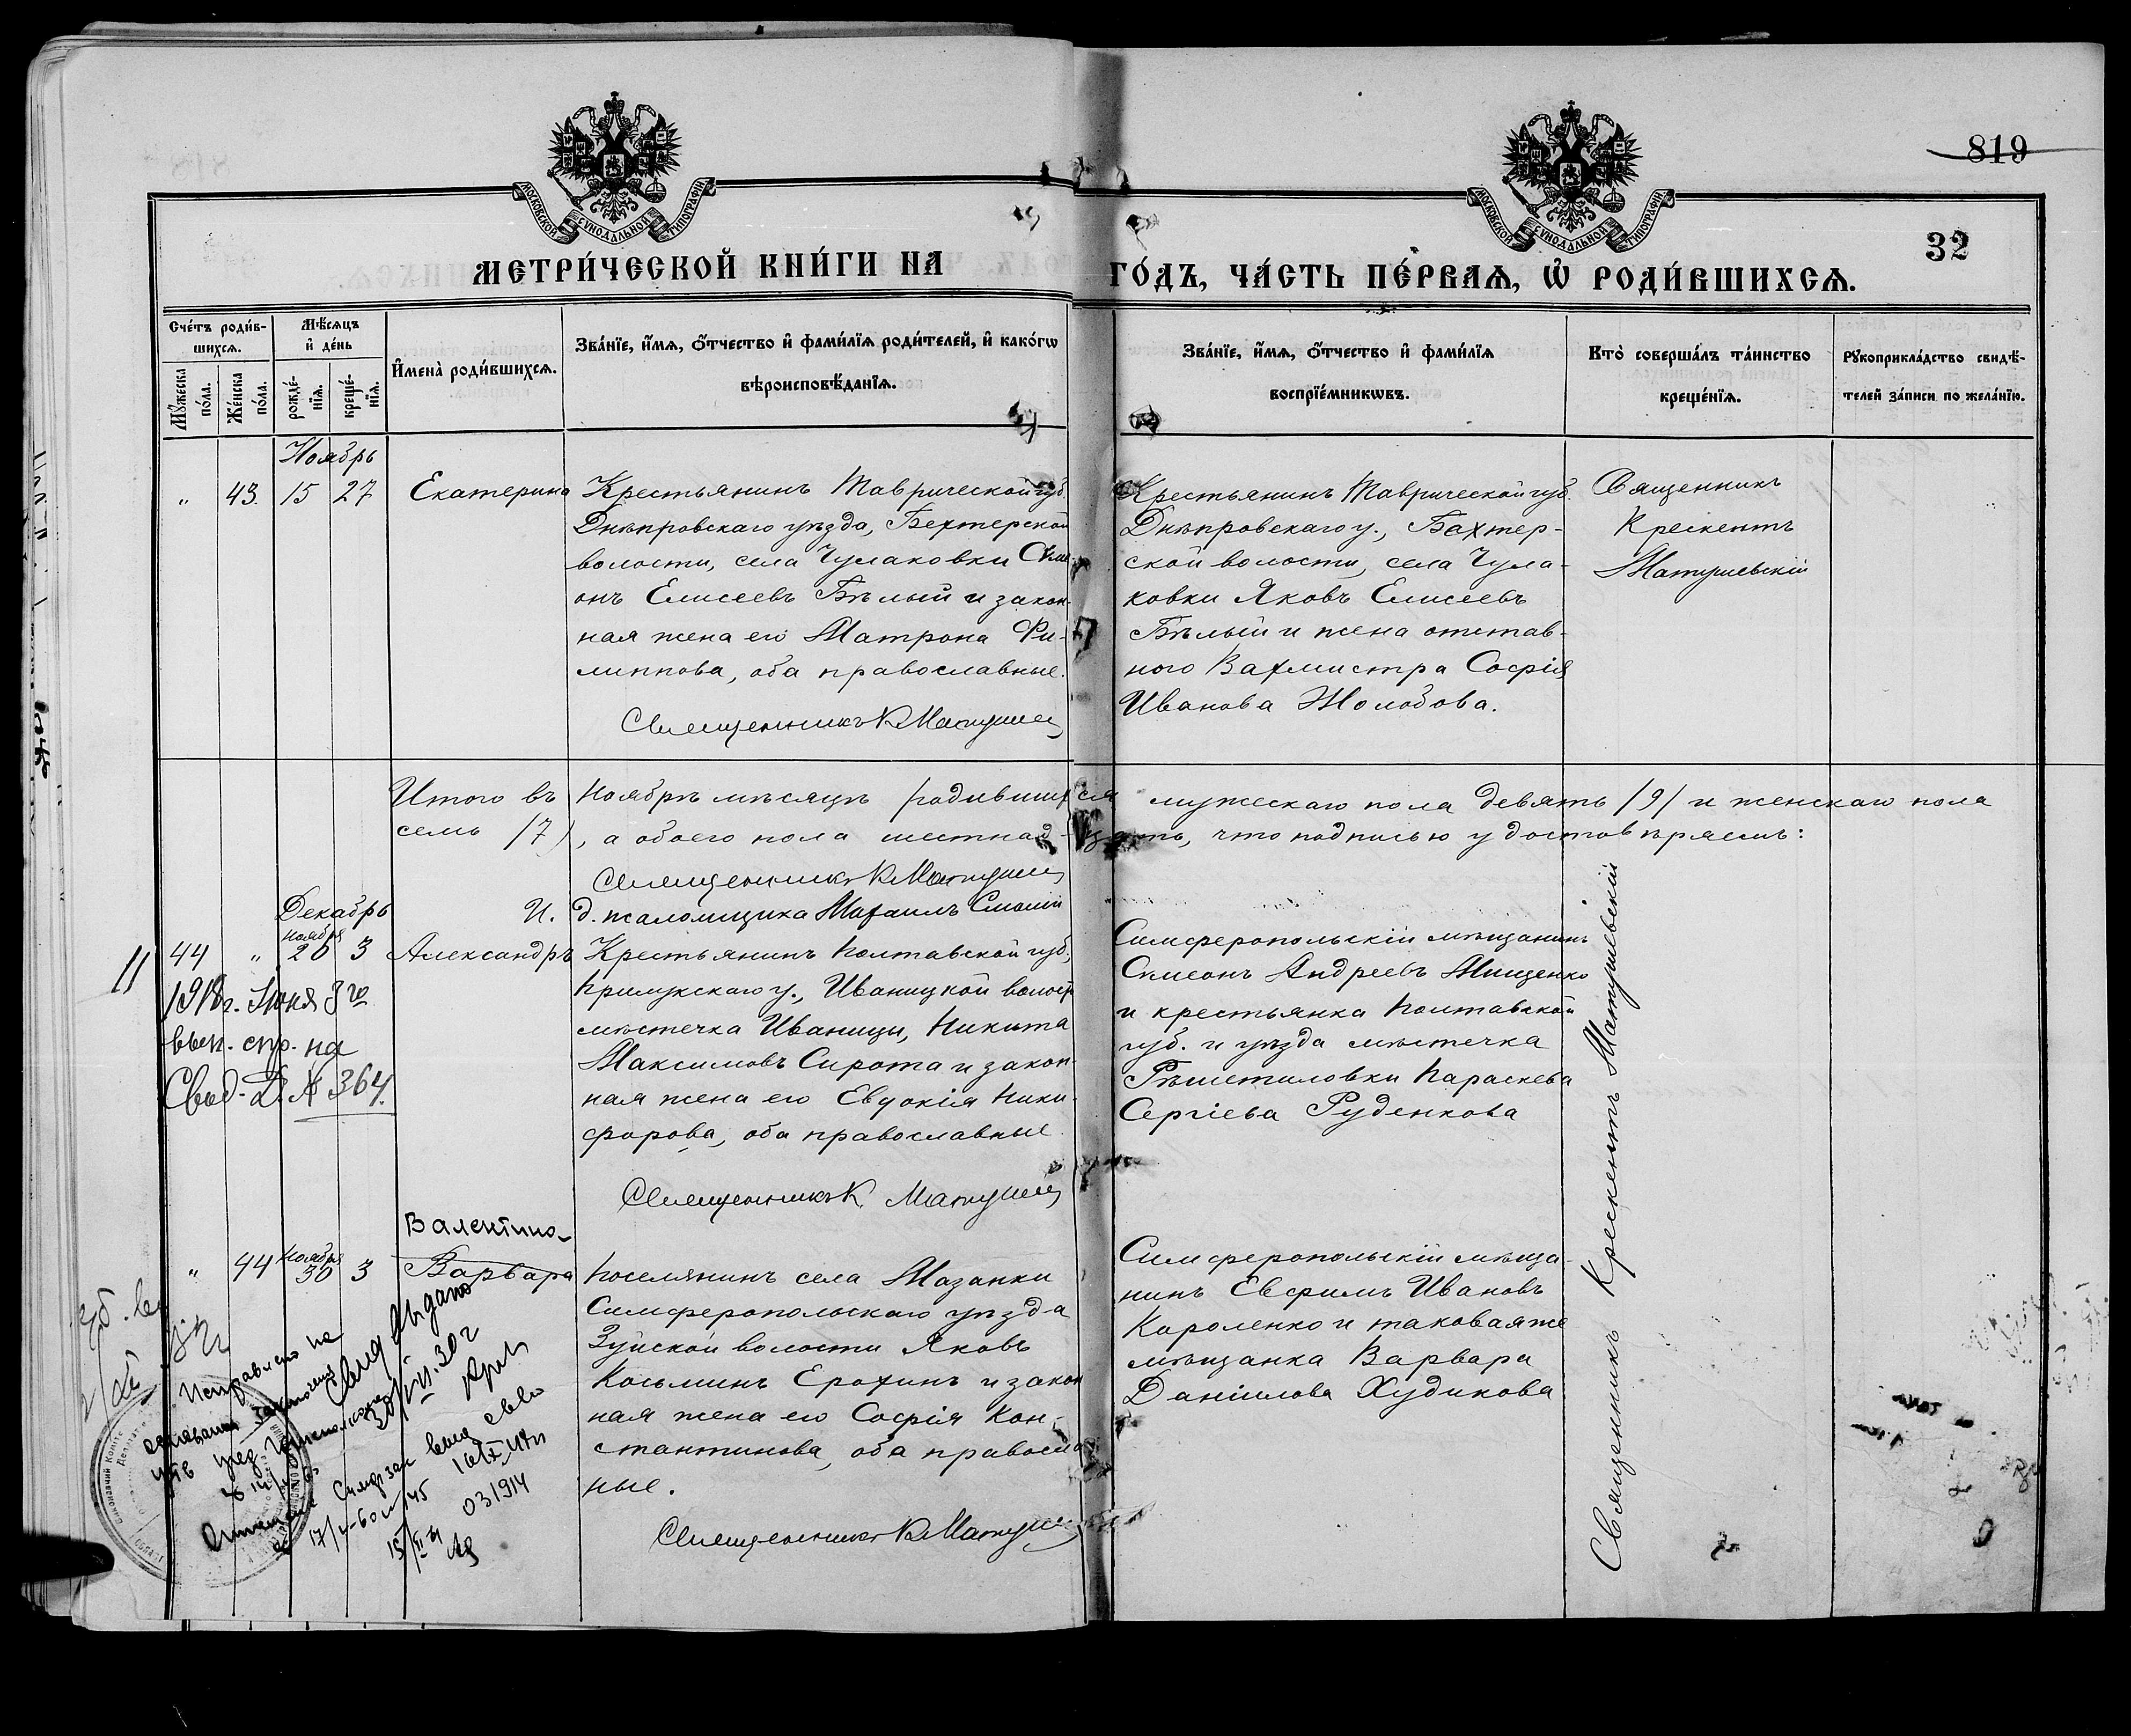 819
32
МОСКОВСКОЙ СУНОДАЛЬНОЙ ТИПОГРАФІИ
МОСКОВСКОЙ СУНОДАЛЬНОЙ ТИПОГРАФІИ
МЕТРИ́ЧЕСКОЙ КНИ́ГИ НА ГО́ДЪ, ЧА́СТЬ ПЕ́РВАѦ, Ѡ҆ РОДИ́ВШИХСѦ.
Сче́тъ роди́в-
шихсѧ.
Мꙋ́жеска по́ла.
Же́нска по́ла.
Мѣ́сѧцъ
и҆ де́нь
рожде́-
нїѧ.
креще́-
нїѧ.
И҆мена̀ роди́вшихсѧ.
Зва́нїе, и҆́мѧ, ѻ҆́тчество и҆ фами́лїѧ роди́телей, и҆ како́гѡ
вѣроисповѣ́данїѧ.
Зва́нїе, и҆́мѧ, ѻ҆́тчество и҆ фами́лїѧ
воспрїе́мникѡвъ.
Кто̀ соверша́лъ та́инство
креще́нїѧ.
Рꙋкоприкла́дство свидѣ́-
телей за́писи по жела́нїю.
Ноябрь
„ 43. 15 27 Екатерина
Крестьянинъ Таврической губ.
Днѣпровскаго уѣзда, Бехтерской
волости, села Чулаковки Симе-
онъ Елисеевъ Бѣлый и закон-
ная жена его Матрона Фи-
липпова, оба православные.
Священникъ К Матушев
Крестьянинъ Таврической губ.
Днѣпровскаго у., Бехтер-
ской волости, села Чула-
ковки Яковъ Елисеевъ
Бѣлый и жена отстав-
ного Вахмистра Софія
Иванова Жолобова.
Священникъ
Крескентъ
Матушевскій
Итого въ Ноябрѣ мѣсяцѣ родившихся мужескаго пола девять /9/ и женскаго пола
семь /7/, а обоего пола шестнадцать, что подписью удостовѣряемъ:
Священникъ К Матушев
И. д. псаломщика Михаилъ
Декабрь
ноября
44 „ 20 3 Александръ
Крестьянинъ Полтавской губ.,
Прилукскаго у., Иваницкой волости
мѣстечка Иваницы, Никита
Максимовъ Сирота и закон-
ная жена его Евдокія Ники-
форова, оба православные
Священникъ К Матушев
Симферопольскій мѣщанинъ
Симеонъ Андреевъ Мищенко
и крестьянка Полтавской
губ. и уѣзда мѣстечка
Рѣшетиловки Параскева
Сергіева Руденкова
11
1918г. Июня 3го
вып. спр. на
Свод. Д. № 364.
Валентина
ноября
„ 44 30 3 Варвара
Поселянинъ села Мазанки
Симферопольскаго уѣзда
Зуйской волости Яковъ
Косьминъ Ерохинъ и закон
ная жена его Софія Кон-
стантинова, оба православ
ные.
Священникъ К Матушев
Симферопольскій мѣща-
нинъ Евфимъ Ивановъ
Короленко и таковая же
мѣщанка Варвара
Даніилова Худикова
Священникъ Крескентъ Матушевскій
Исправлено на
основании заключения
031914